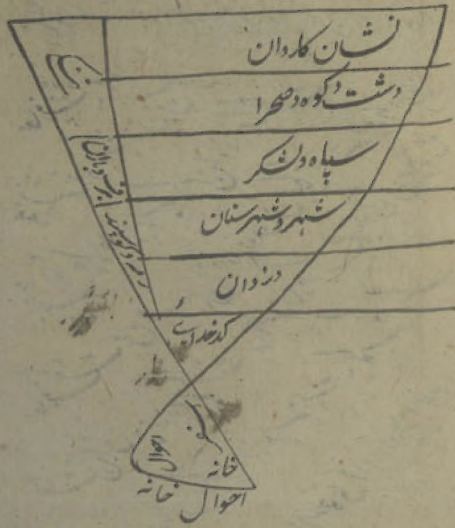 نشان کاروان
دشت و کوه و صحرا
سپاه و لشکر
شهر و شهرستان
دزدان
کدخدای
رمه و گوسپند
خانه
احوال
احوال خانه